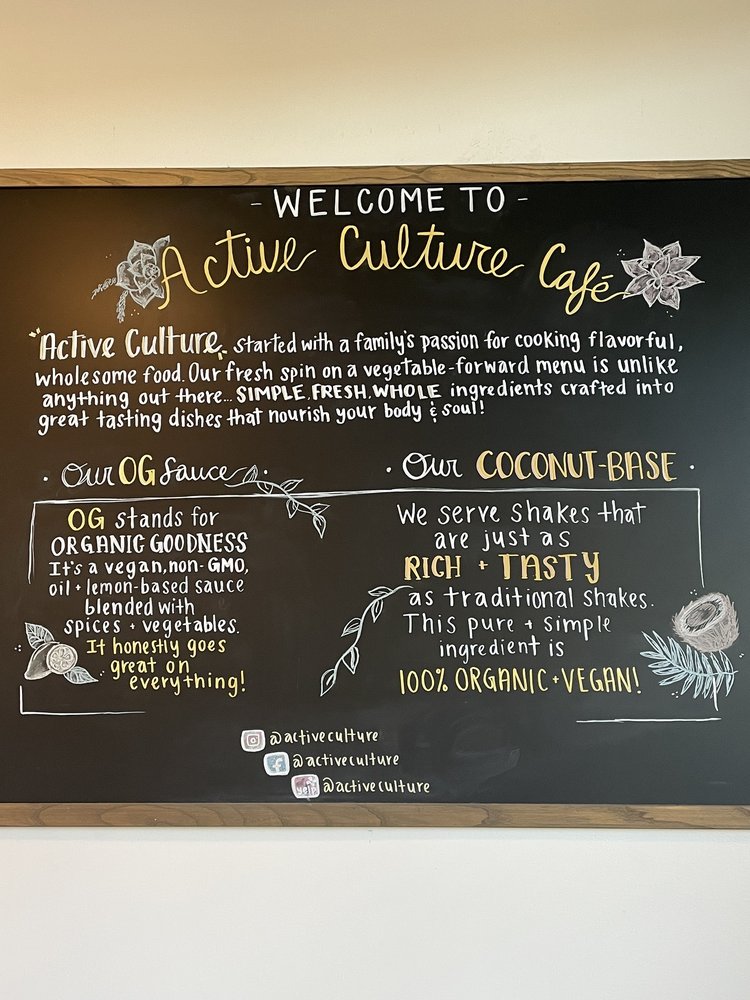 - WELCOME TO -
Active Culture Café
"Active Culture" started with a family's passion for cooking flavorful,
wholesome food. Our fresh spin on a vegetable-forward menu is unlike
anything out there... SIMPLE, FRESH, WHOLE ingredients crafted into
great tasting dishes that nourish your body & soul!
· Our OG Sauce ·
OG stands for
ORGANIC GOODNESS
It's a vegan, non-GMO,
oil + lemon-based sauce
blended with
spices + vegetables.
It honestly goes
great on
everything!
· Our COCONUT-BASE ·
We serve shakes that
are just as
RICH + TASTY
as traditional shakes.
This pure + simple
ingredient is
100% ORGANIC + VEGAN!
@activeculture
@activeculture
yelp @activeculture